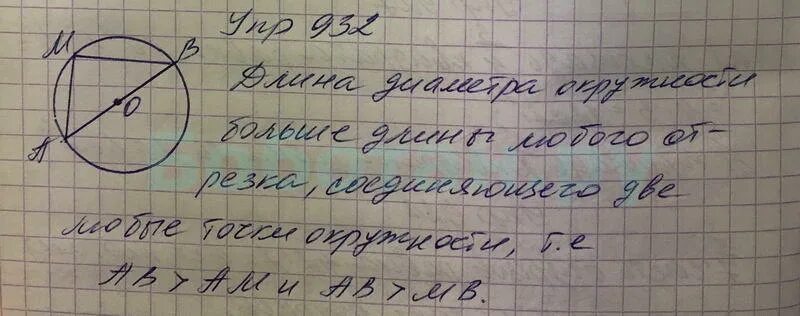 Упр 932
М
В
О
А
Длина диаметра окружности
больше длины любого от-
резка, соединяющего две
любые точки окружности, т.е
АВ > АМ и АВ > МВ.